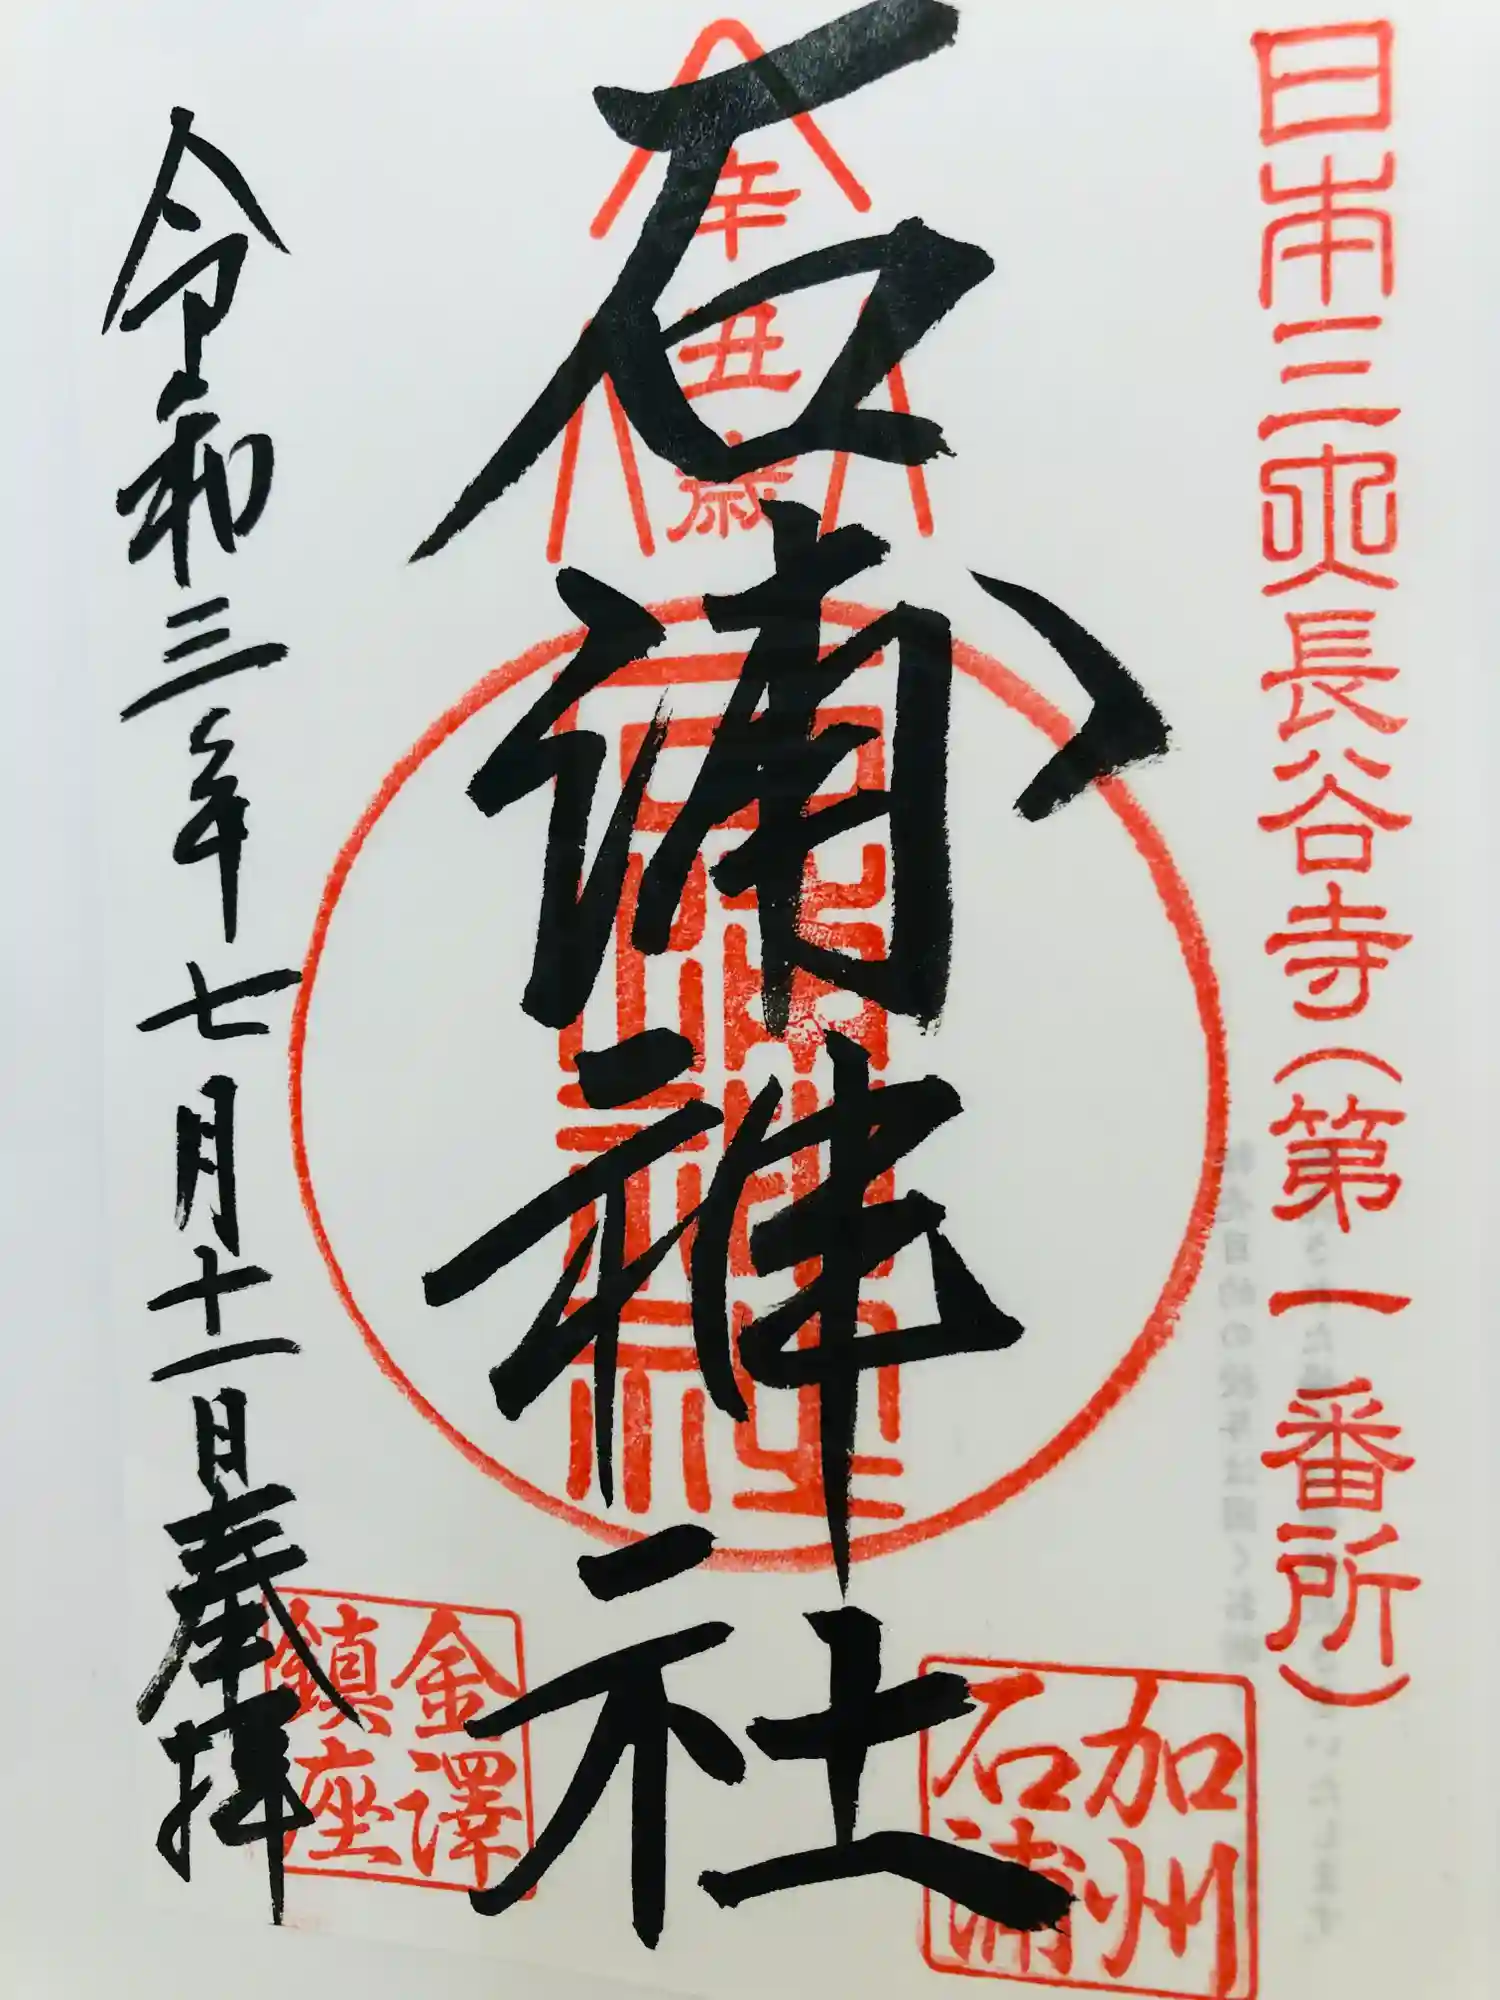 日本三大長谷寺(第一番所)
加州
石浦
辛丑歳
石浦神社
金澤
鎮座
令和三年七月十一日奉拝